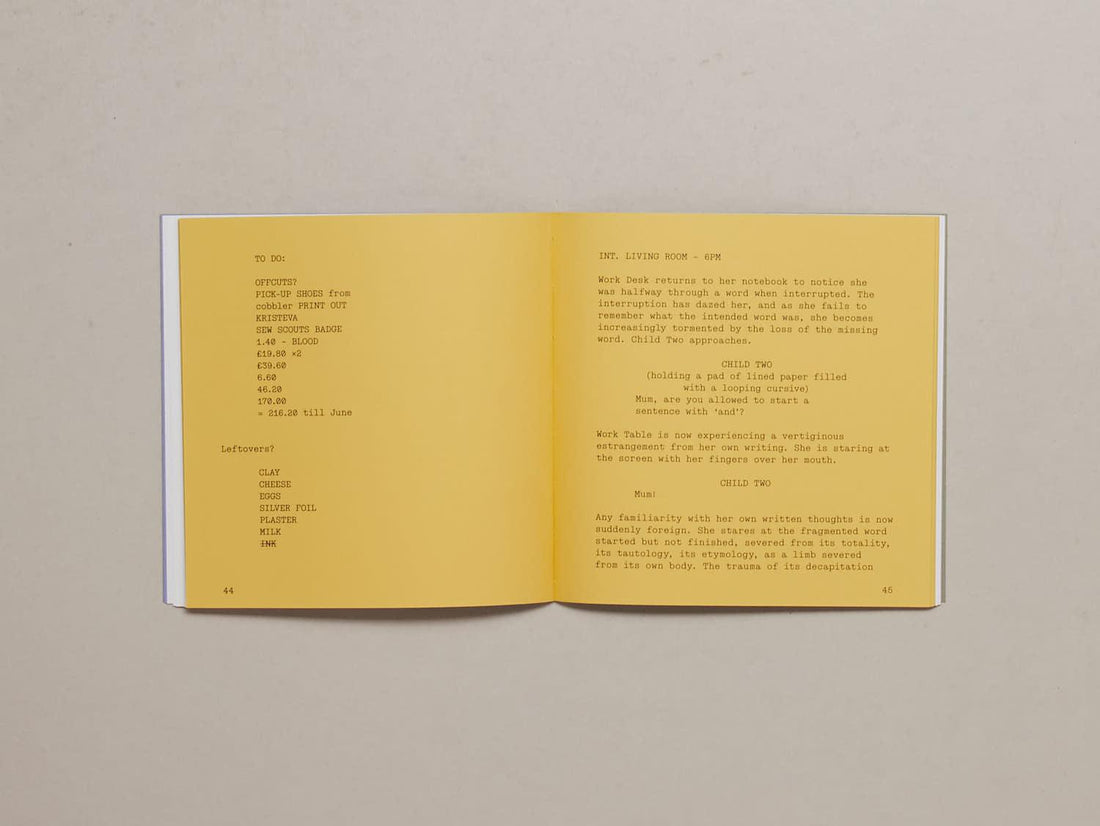 TO DO:
OFFCUTS?
PICK-UP SHOES from
cobbler PRINT OUT
KRISTEVA
SEW SCOUTS BADGE
1.40 - BLOOD
£19.80 ×2
£39.60
6.60
46.20
170.00
= 216.20 till June
Leftovers?
CLAY
CHEESE
EGGS
SILVER FOIL
PLASTER
MILK
INK
44
INT. LIVING ROOM - 6PM
Work Desk returns to her notebook to notice she
was halfway through a word when interrupted. The
interruption has dazed her, and as she fails to
remember what the intended word was, she becomes
increasingly tormented by the loss of the missing
word. Child Two approaches.
CHILD TWO
(holding a pad of lined paper filled
with a looping cursive)
Mum, are you allowed to start a
sentence with ‘and’?
Work Table is now experiencing a vertiginous
estrangement from her own writing. She is staring at
the screen with her fingers over her mouth.
CHILD TWO
Mum!
Any familiarity with her own written thoughts is now
suddenly foreign. She stares at the fragmented word
started but not finished, severed from its totality,
its tautology, its etymology, as a limb severed
from its own body. The trauma of its decapitation
45